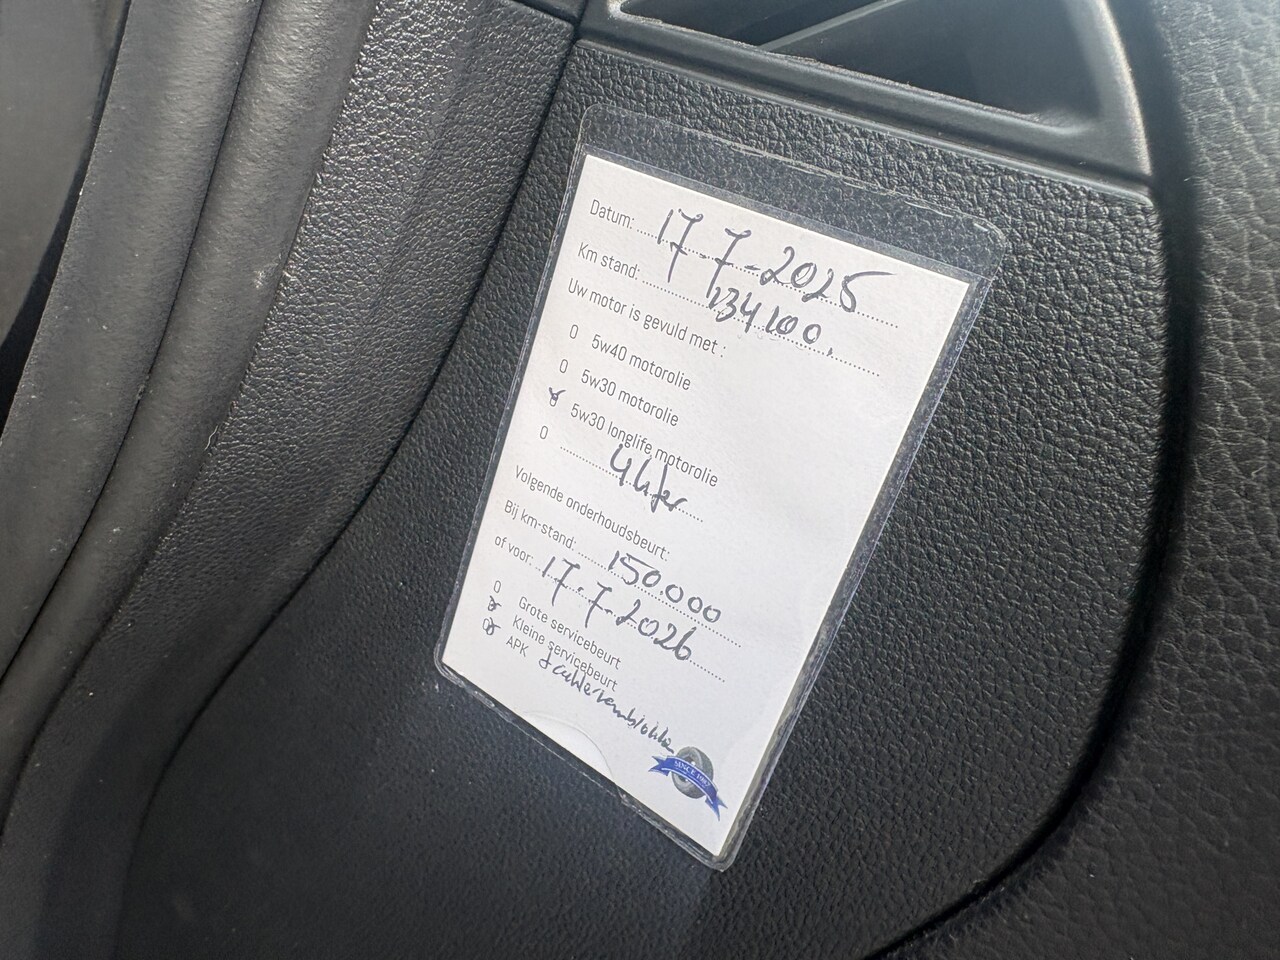 Datum: 17-7-2025
Km stand: 134100.
Uw motor is gevuld met :
0 5w40 motorolie
0 5w30 motorolie
0 5w30 longlife motorolie
0 4 liter
Volgende onderhoudsbeurt:
Bij km-stand: 150.000
of voor: 17-7-2026
0 Grote servicebeurt
0 Kleine servicebeurt
0 APK
SINCE 1987